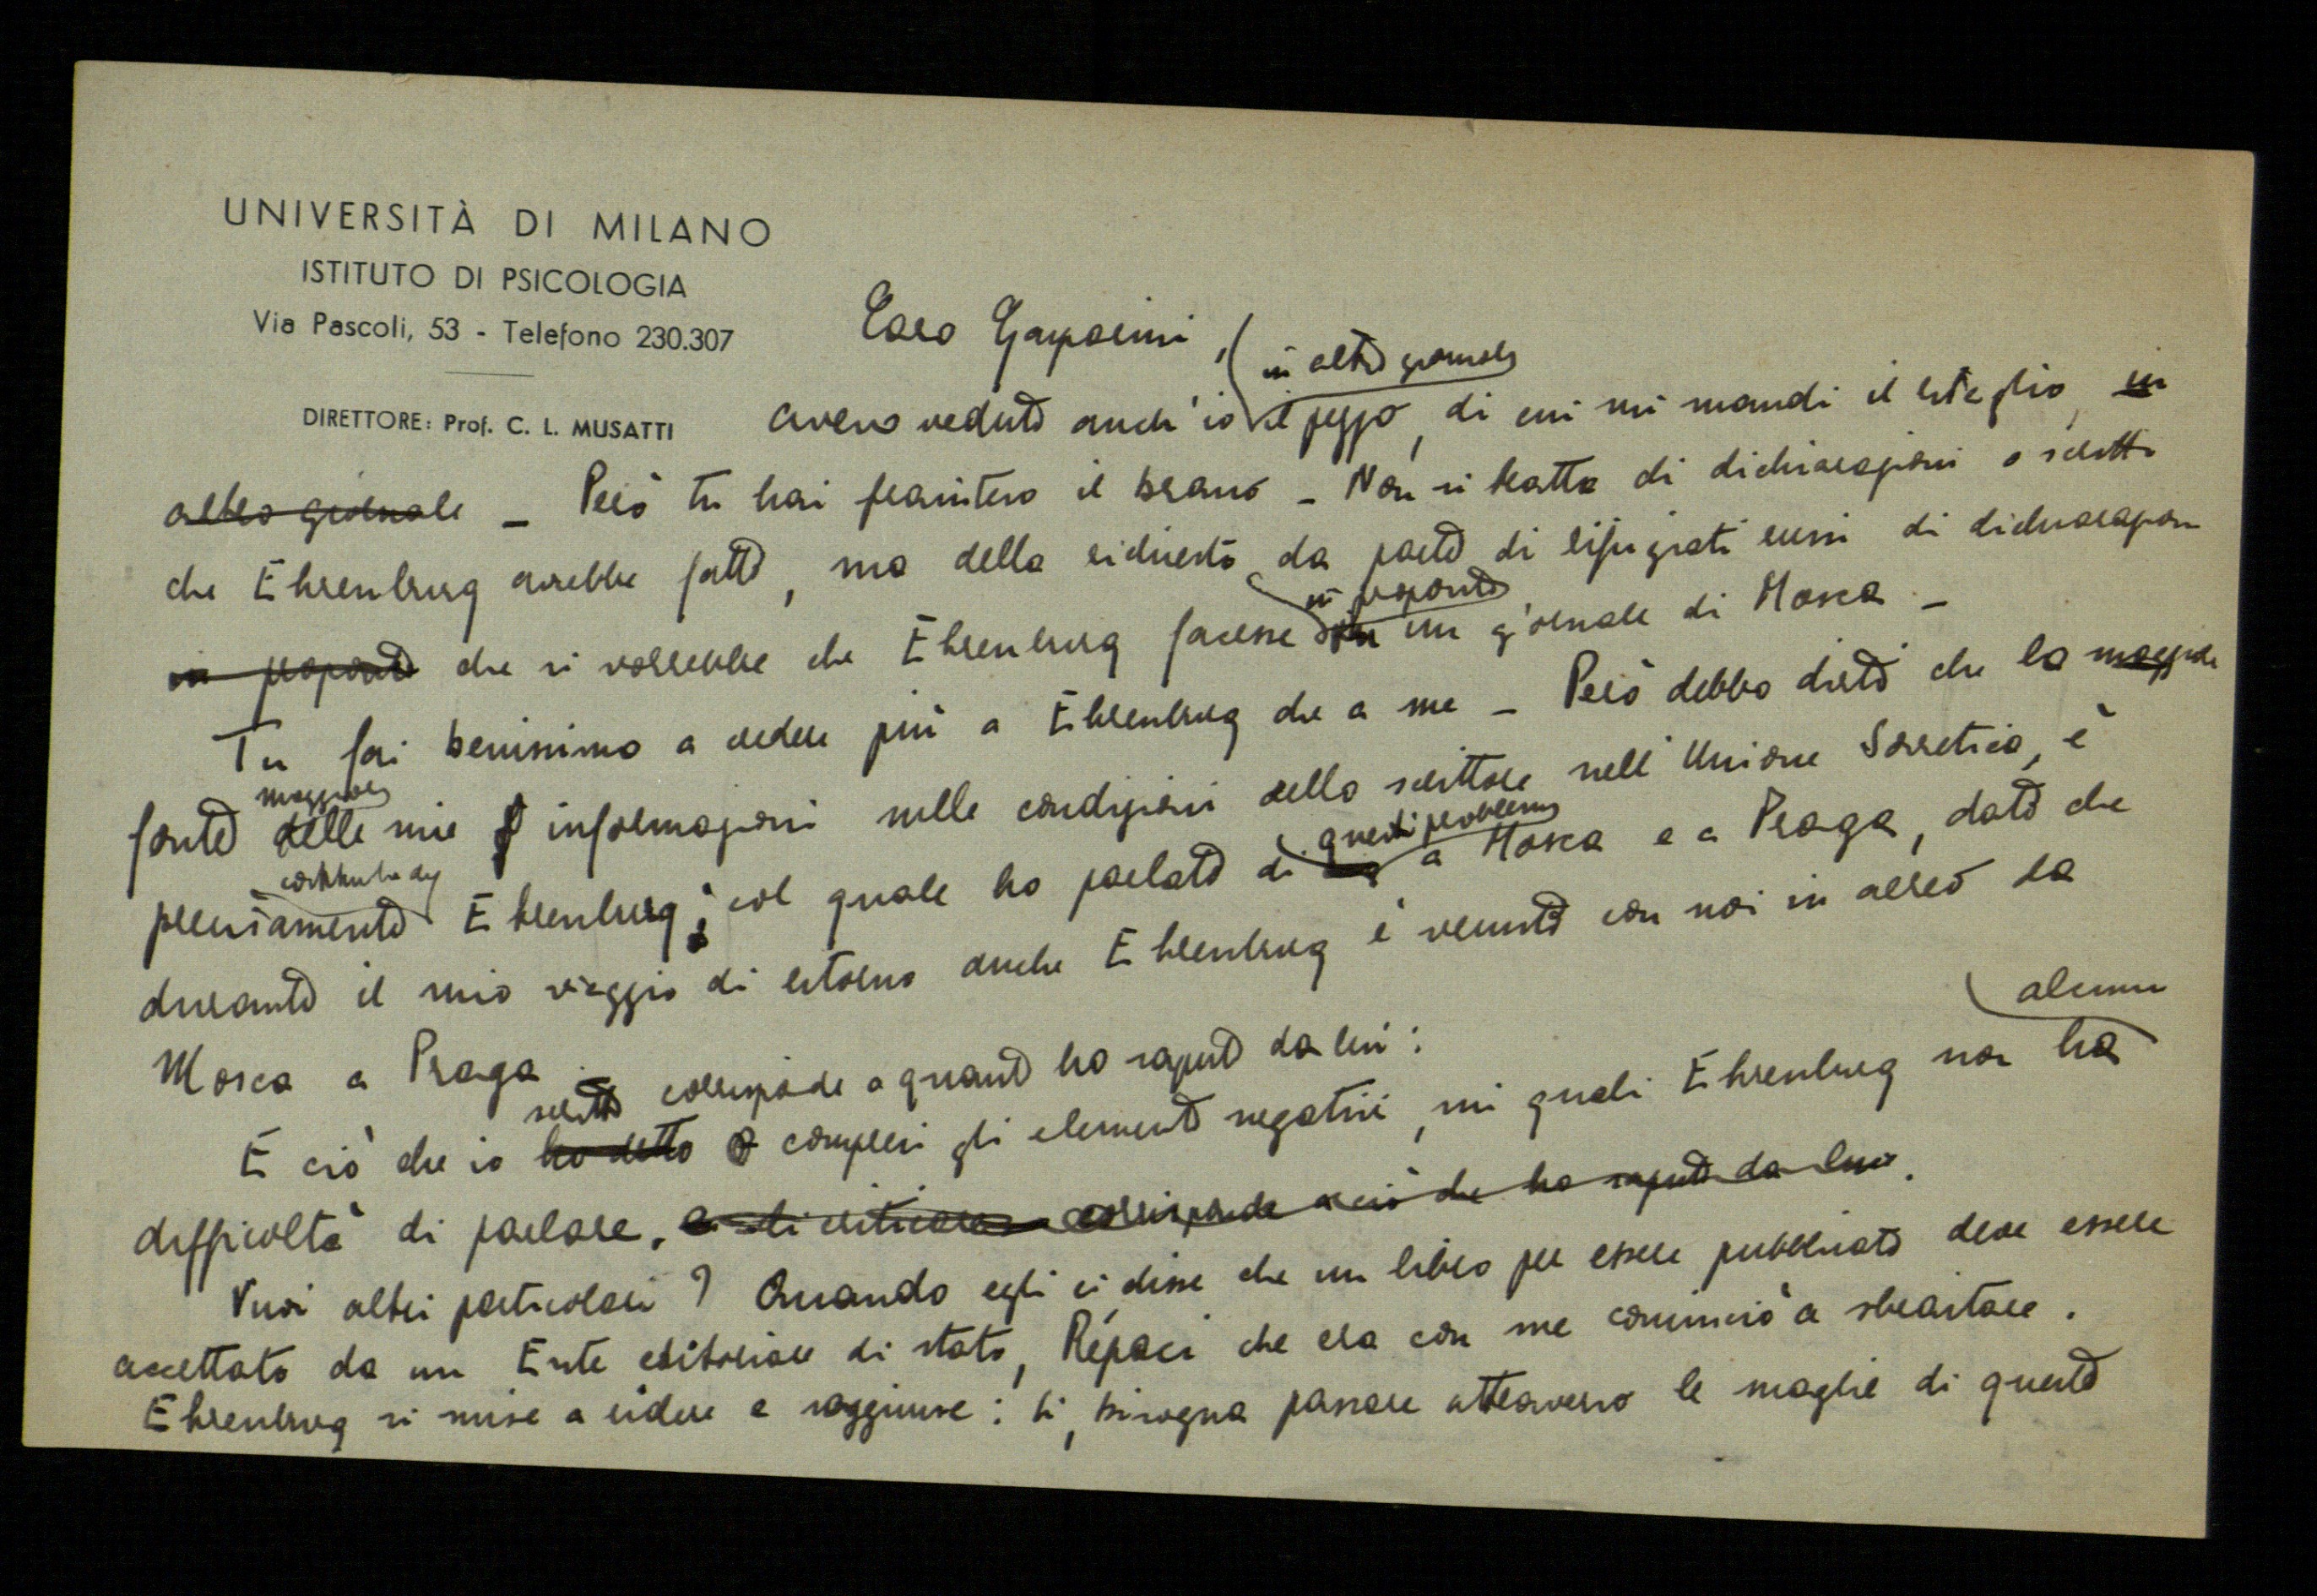 UNIVERSITÀ DI MILANO
ISTITUTO DI PSICOLOGIA
Via Pascoli, 53 - Telefono 230.307
DIRETTORE: Prof. C. L. MUSATTI
Caro Gasparini,
in altro giornale
avevo veduto anch'io il pezzo, di cui mi mandi il ritaglio, in
altro giornale _ Però tu hai frainteso il brano _ Non si tratta di dichiarazioni o scritti
che Ehrenburg avrebbe fatto, ma della richiesta da parte di rifugiati russi di dichiarazioni
in proposito
in proposito che si vorrebbe che Ehrenburg facesse su un giornale di Mosca _
Tu fai benissimo a credere più a Ehrenburg che a me _ Però debbo dirti che la maggiore
maggiore
fonte delle mie informazioni sulle condizioni dello scrittore nell'Unione Sovietica, è
costituita da questi problemi
precisamente Ehrenburg, col quale ho parlato di a Mosca e a Praga, dato che
durante il mio viaggio di ritorno anche Ehrenburg è venuto con noi in aereo da
Mosca a Praga
alcuna
scritto corrisponde a quanto ho saputo da lui:
E ciò che io ho detto compresi gli elementi negativi, sui quali Ehrenburg non ha
difficoltà di parlare. e di criticare corrisponde a ciò che ho saputo da lui.
Vuoi altri particolari? Quando egli ci disse che un libro per essere pubblicato deve essere
accettato da un Ente editoriale di stato, Répaci che era con me cominciò a sbraitare.
Ehrenburg si mise a ridere e soggiunse: sì, bisogna passare attraverso le maglie di questo